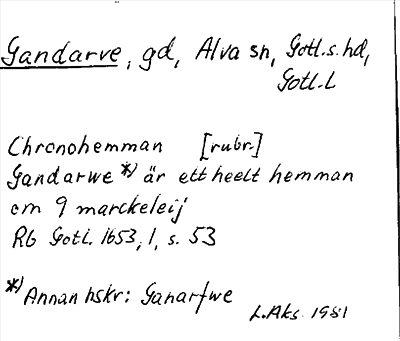 Gandarve, gd, Alva sn, Gotl.s.hd,
Gotl.L
Chronohemman [rubr.]
Gandarwe *) är ett heelt hemman
om 9 marckeleij
Rb Gotl. 1653, 1, s. 53
*) Annan hskr: Ganarfwe
L.Aks. 1981